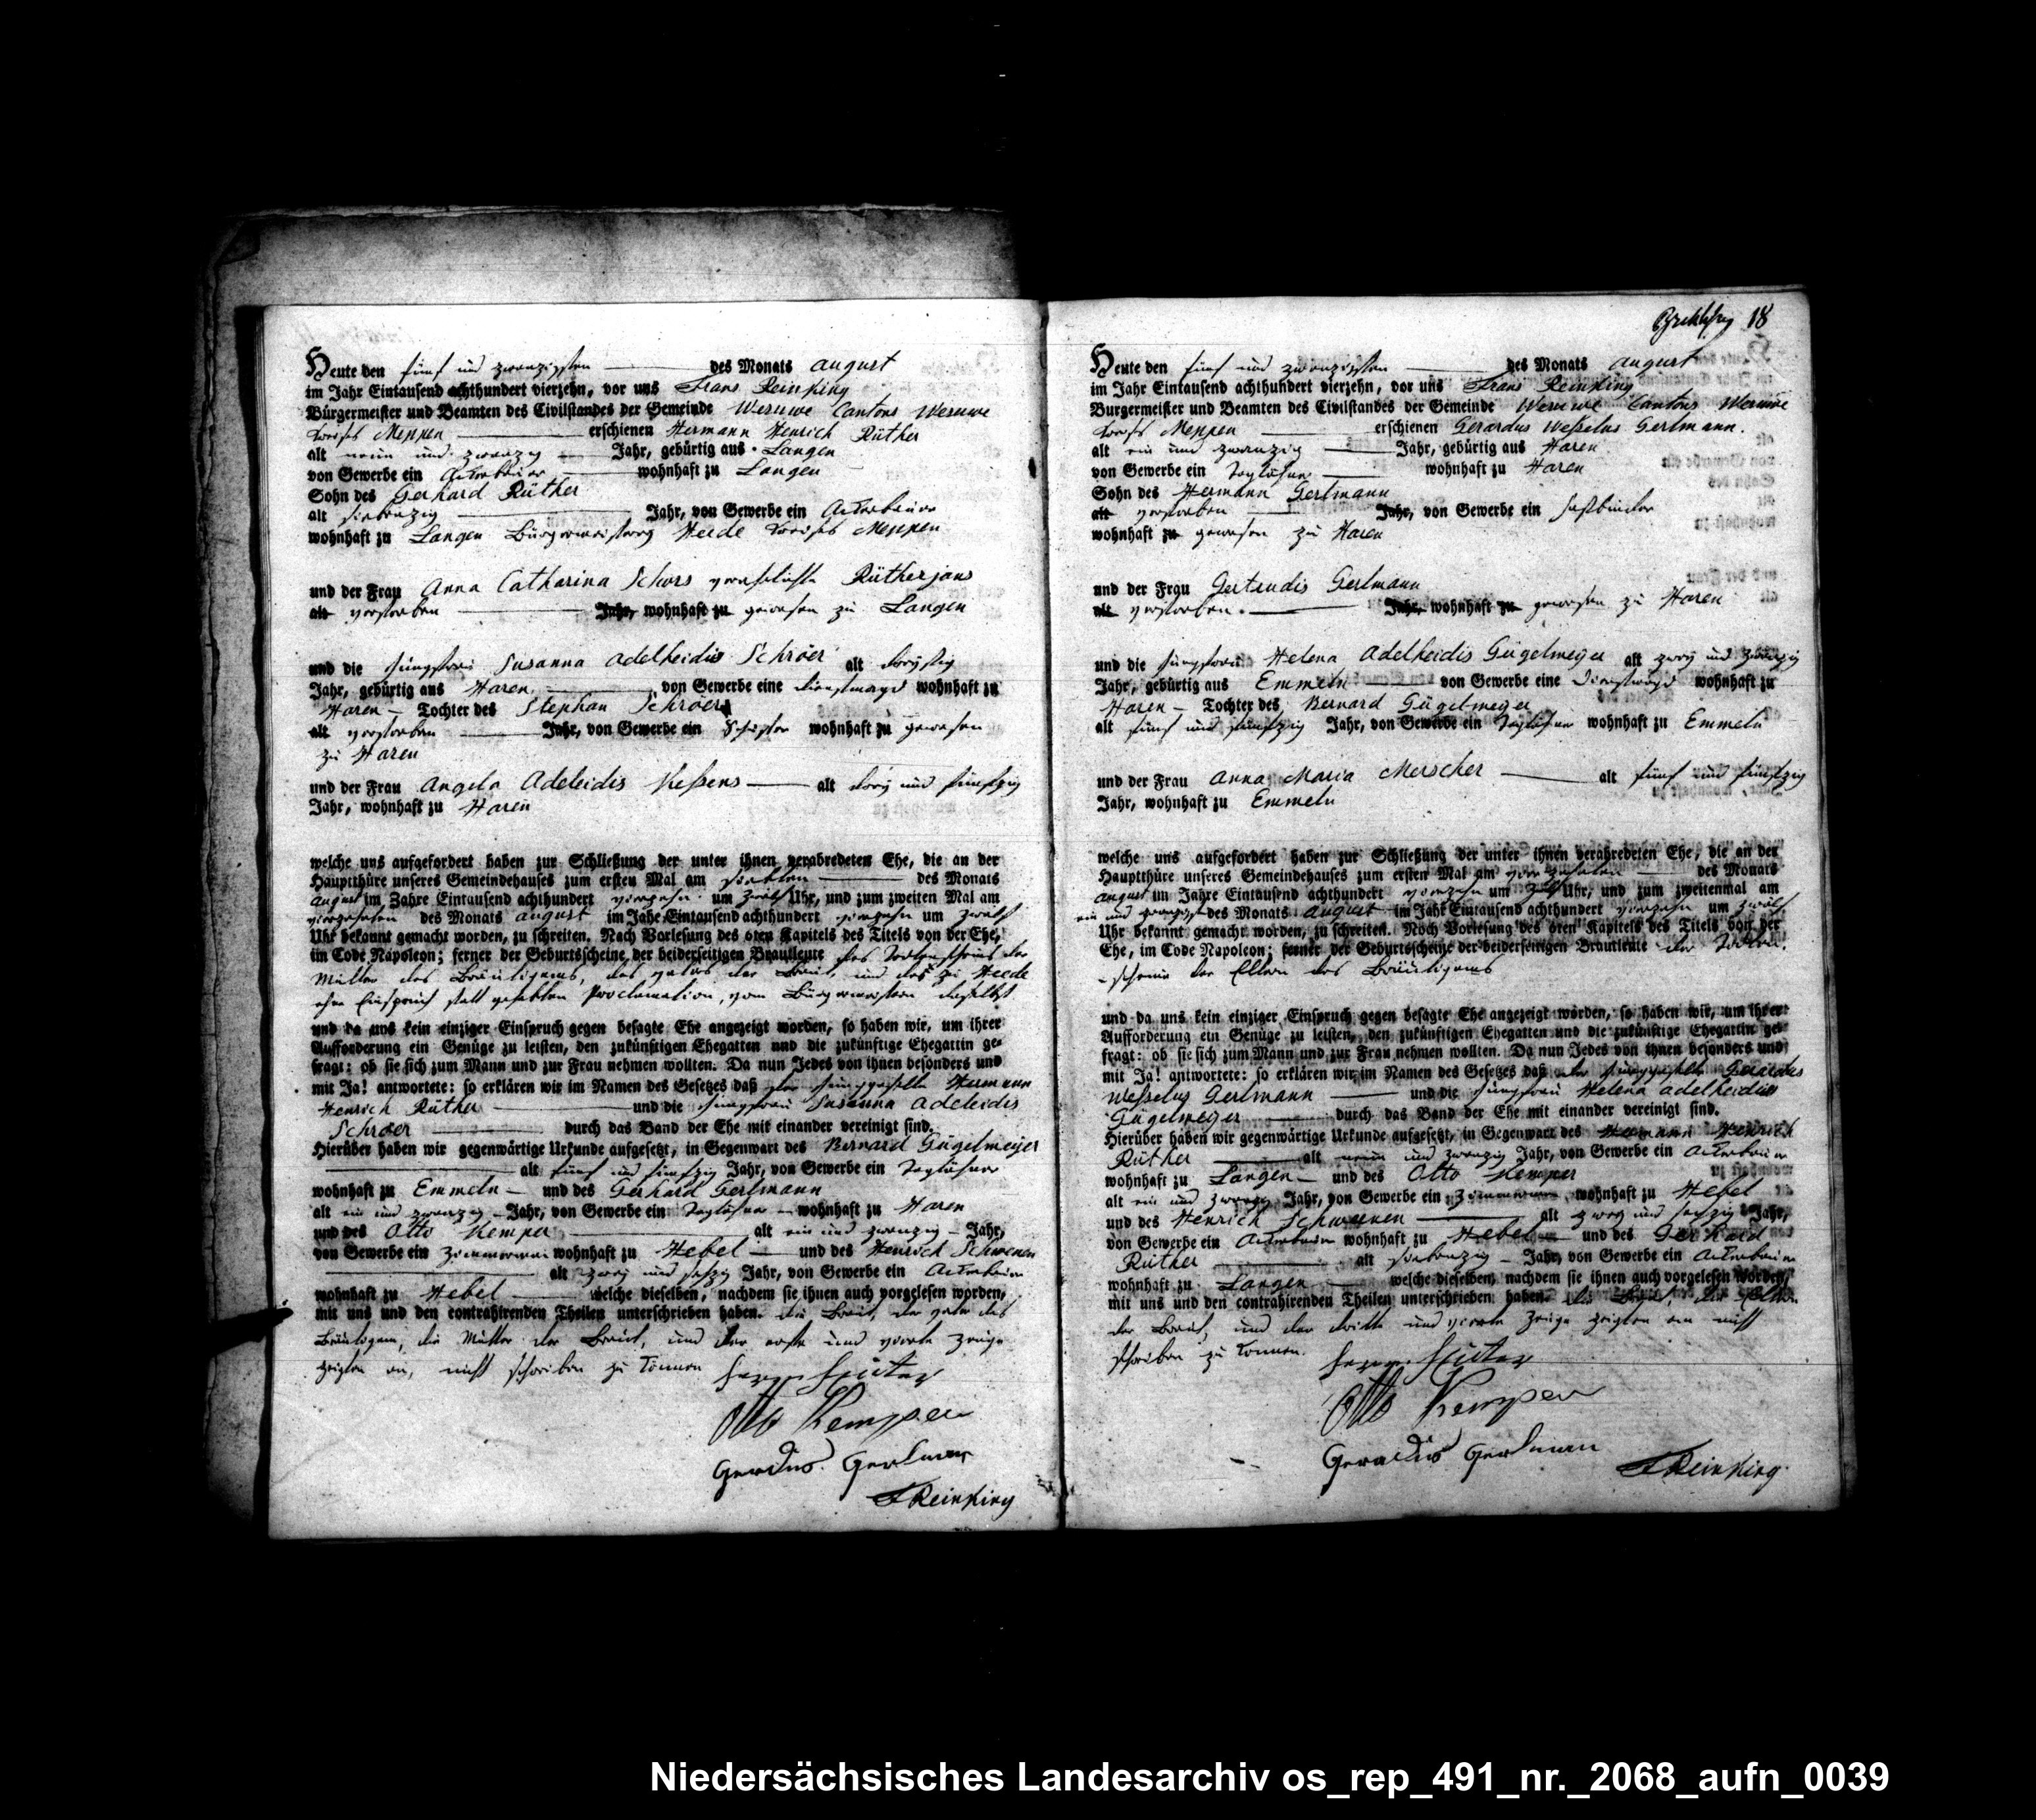 Heute den fünf und zwanzigsten des Monats august
im Jahr Eintausend achthundert vierzehn, vor uns Frans Reinking
Bürgermeister und Beamten des Civilstandes der Gemeinde Weruwe Cantons Weruwe
Kreises Meppen erschienen Hermann Henrich Rüther
alt neun und zwanzig Jahr, gebürtig aus Langen
von Gewerbe ein Ackerbauer wohnhaft zu Langen
Sohn des Gerhard Rüther
alt siebenzig Jahr, von Gewerbe ein Ackerbauer
wohnhaft zu Langen Bürgermeisterey Heede Kreises Meppen
und der Frau Anna Catharina Schors verehelichte Rütherjans
alt verstorben Jahr, wohnhaft zu gewesen zu Langen
und die Jungfrau Susanna Adelheidis Schröer alt dreyssig
Jahr, gebürtig aus Haren von Gewerbe eine Dienstmagd wohnhaft zu
Haren – Tochter des Stephan Schröer
alt verstorben Jahr, von Gewerbe ein Schuster wohnhaft zu gewesen
zu Haren
und der Frau Angela Adeleidis Keßens alt drey und fünfzig
Jahr, wohnhaft zu Haren
welche uns aufgefordert haben zur Schließung der unter ihnen verabredeten Ehe, die an der
Hauptthüre unseres Gemeindehauses zum ersten Mal am siebten des Monats
August im Jahre Eintausend achthundert vierzehn um zwölf Uhr, und zum zweiten Mal am
vierzehnten des Monats august im Jahr Eintausend achthundert vierzehn um zwölf
Uhr bekannt gemacht worden, zu schreiten. Nach Vorlesung des 6ten Kapitels des Titels von der Ehe,
im Code Napoleon; ferner der Geburtsscheine der beiderseitigen Brautleute des Todtenscheins der
Mutter des Bräutigams, des Vaters der Braut, und des zu Heede
ohne Einspruch statt gehabten Proclamation, vom Bürgermeistern daselbst
und da uns kein einziger Einspruch gegen besagte Ehe angezeigt worden, so haben wir, um ihrer
Aufforderung ein Genüge zu leisten, den zukünftigen Ehegatten und die zukünftige Ehegattin ge-
fragt: ob sie sich zum Mann und zur Frau nehmen wollten. Da nun Jedes von ihnen besonders und
mit Ja! antwortete: so erklären wir im Namen des Gesetzes daß der Junggeselle Hermann
Henrich Rüther und die Jungfrau Susanna Adeleidis
Schröer durch das Band der Ehe mit einander vereinigt sind.
Hierüber haben wir gegenwärtige Urkunde aufgesetzt, in Gegenwart des Bernard Gügelmeÿer
alt fünf und fünfzig Jahr, von Gewerbe ein Taglöhner
wohnhaft zu Emmeln – und des Gerhard Gerlmann
alt ein und zwanzig – Jahr, von Gewerbe ein Taglöhner – wohnhaft zu Haren
und des Otto Kemper alt ein und zwanzig – Jahr,
von Gewerbe ein Zimmerman wohnhaft zu Hebel – und des Henrich Schwenen
alt zwey und sechzig Jahr, von Gewerbe ein Ackerbauer
wohnhaft zu Hebel welche dieselben, nachdem sie ihnen auch vorgelesen worden,
mit uns und den contrahirenden Theilen unterschrieben haben. die Braut, der Vater des
Bräutigams, die Mutter der Braut, und der erste und vierte Zeuge
zeigten an, nicht schreiben zu können
Otto Kemper
Gerdus Gerlman
F Reinking
18
Heute den fünf und zwanzigsten des Monats august
im Jahr Eintausend achthundert vierzehn, vor uns Frans Reinking
Bürgermeister und Beamten des Civilstandes der Gemeinde Weruwe Cantons Weruwe
Kreises Meppen erschienen Gerardus Weßelus Gerlmann.
alt ein und zwanzig Jahr, gebürtig aus Haren
von Gewerbe ein Taglöhner wohnhaft zu Haren
Sohn des Hermann Gerlmann
alt verstorben Jahr, von Gewerbe ein Faßbinder
wohnhaft zu gewesen zu Haren
und der Frau Gertrudis Gerlmann
alt verstorben. Jahr, wohnhaft zu gewesen zu Haren
und die Jungfrau Helena Adelheidis Gügelmeÿer alt zwey und zwanzig
Jahr, gebürtig aus Emmeln von Gewerbe eine Dienstmagd wohnhaft zu
Haren – Tochter des Bernard Gügelmeÿer
alt fünf und fünfzig Jahr, von Gewerbe ein Taglöhner wohnhaft zu Emmeln
und der Frau Anna Maria Merscher alt fünf und fünfzig
Jahr, wohnhaft zu Emmeln
welche uns aufgefordert haben zur Schließung der unter ihnen verabredeten Ehe, die an der
Hauptthüre unseres Gemeindehauses zum ersten Mal am vierzehnten des Monats
August im Jahre Eintausend achthundert vierzehn um zwölf Uhr, und zum zweitenmal am
ein und zwanzigsten des Monats august im Jahr Eintausend achthundert vierzehn um zwölf
Uhr bekannt gemacht worden, zu schreiten. Nach Vorlesung des 6ten Kapitels des Titels von der
Ehe, im Code Napoleon; ferner der Geburtsscheine der beiderseitigen Brautleute der Todten-
-scheine der Eltern des Bräutigams
und da uns kein einziger Einspruch gegen besagte Ehe angezeigt worden, so haben wir, um ihrer
Aufforderung ein Genüge zu leisten, den zukünftigen Ehegatten und die zukünftige Ehegattin ge-
fragt: ob sie sich zum Mann und zur Frau nehmen wollten. Da nun Jedes von ihnen besonders und
mit Ja! antwortete: so erklären wir im Namen des Gesetzes daß der Junggeselle Gerardus
Weßelus Gerlmann und die Jungfrau Helena adelheidis
Gügelmeÿer durch das Band der Ehe mit einander vereinigt sind.
Hierüber haben wir gegenwärtige Urkunde aufgesetzt, in Gegenwart des Hermann Henrich
Rüther alt neun und zwanzig Jahr, von Gewerbe ein Ackerbauer
wohnhaft zu Langen – und des Otto Kemper
alt ein und zwanzig Jahr, von Gewerbe ein Zimmerman wohnhaft zu Hebel
und des Henrich Schwenen alt zwey und sechzig Jahr,
von Gewerbe ein Ackerbauer wohnhaft zu Hebel und des Gerhard
Rüther alt siebenzig – Jahr, von Gewerbe ein Ackerbauer
wohnhaft zu Langen welche dieselben, nachdem sie ihnen auch vorgelesen worden,
mit uns und den contrahirenden Theilen unterschrieben haben. die Braut, die Eltern
der Braut, und der dritte und vierte Zeuge zeigten an nicht
schreiben zu können.
Otto Kemper
Geradus Gerlman
F Reinking
Niedersächsisches Landesarchiv os_rep_491_nr._2068_aufn_0039